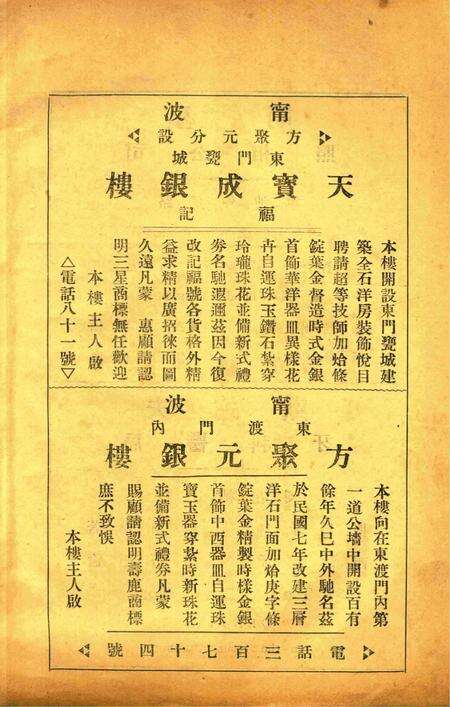 甯波
方聚元分設
東門甕城
天寶成銀樓
福記
本樓開設東門甕城建
築全石洋房裝飾悅目
聘請超等技師加炲條
錠葉金督造時式金銀
首飾華洋器皿異樣花
卉自運珠玉鑽石紮穿
玲瓏珠花並備新式禮
券名馳遐邇茲因今復
改記福號各貨格外精
益求精以廣招徠而圖
久遠凡蒙 惠顧請認
明三星商標無任歡迎
本樓主人啟
△電話八十一號▽
甯波
東渡門內
方聚元銀樓
本樓向在東渡門內第
一道公墻中開設百有
餘年久巳中外馳名茲
於民國七年改建三層
洋石門面加炲庚字條
錠葉金精製時樣金銀
首飾中西器皿自運珠
寶玉器穿紮時新珠花
並備新式禮券凡蒙
賜顧請認明壽鹿商標
庶不致悞
本樓主人啟
電話三百七十四號